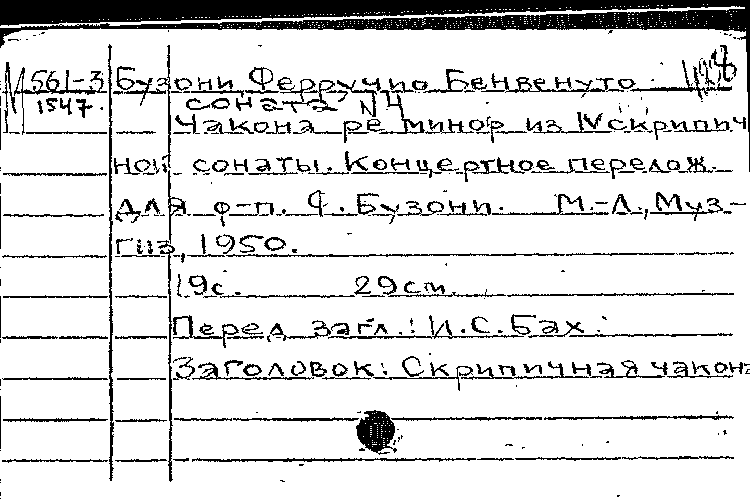 М 561-3 Бузони, Ферруччио Бенвенуто
1547. соната N4
Чакона ре минор из IV скрипич
ной сонаты. Концертное перелож.
для ф-п. Ф. Бузони. М.-Л., Муз-
гиз, 1950.
19с. 29см.
Перед загл.: И.С.Бах.
Заголовок: Скрипичная чакона